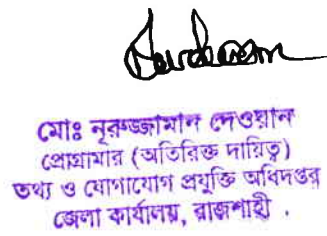 মোঃ নূরুজ্জামান দেওয়ান
প্রোগ্রামার (অতিরিক্ত দায়িত্ব)
তথ্য ও যোগাযোগ প্রযুক্তি অধিদপ্তর
জেলা কার্যালয়, রাজশাহী .